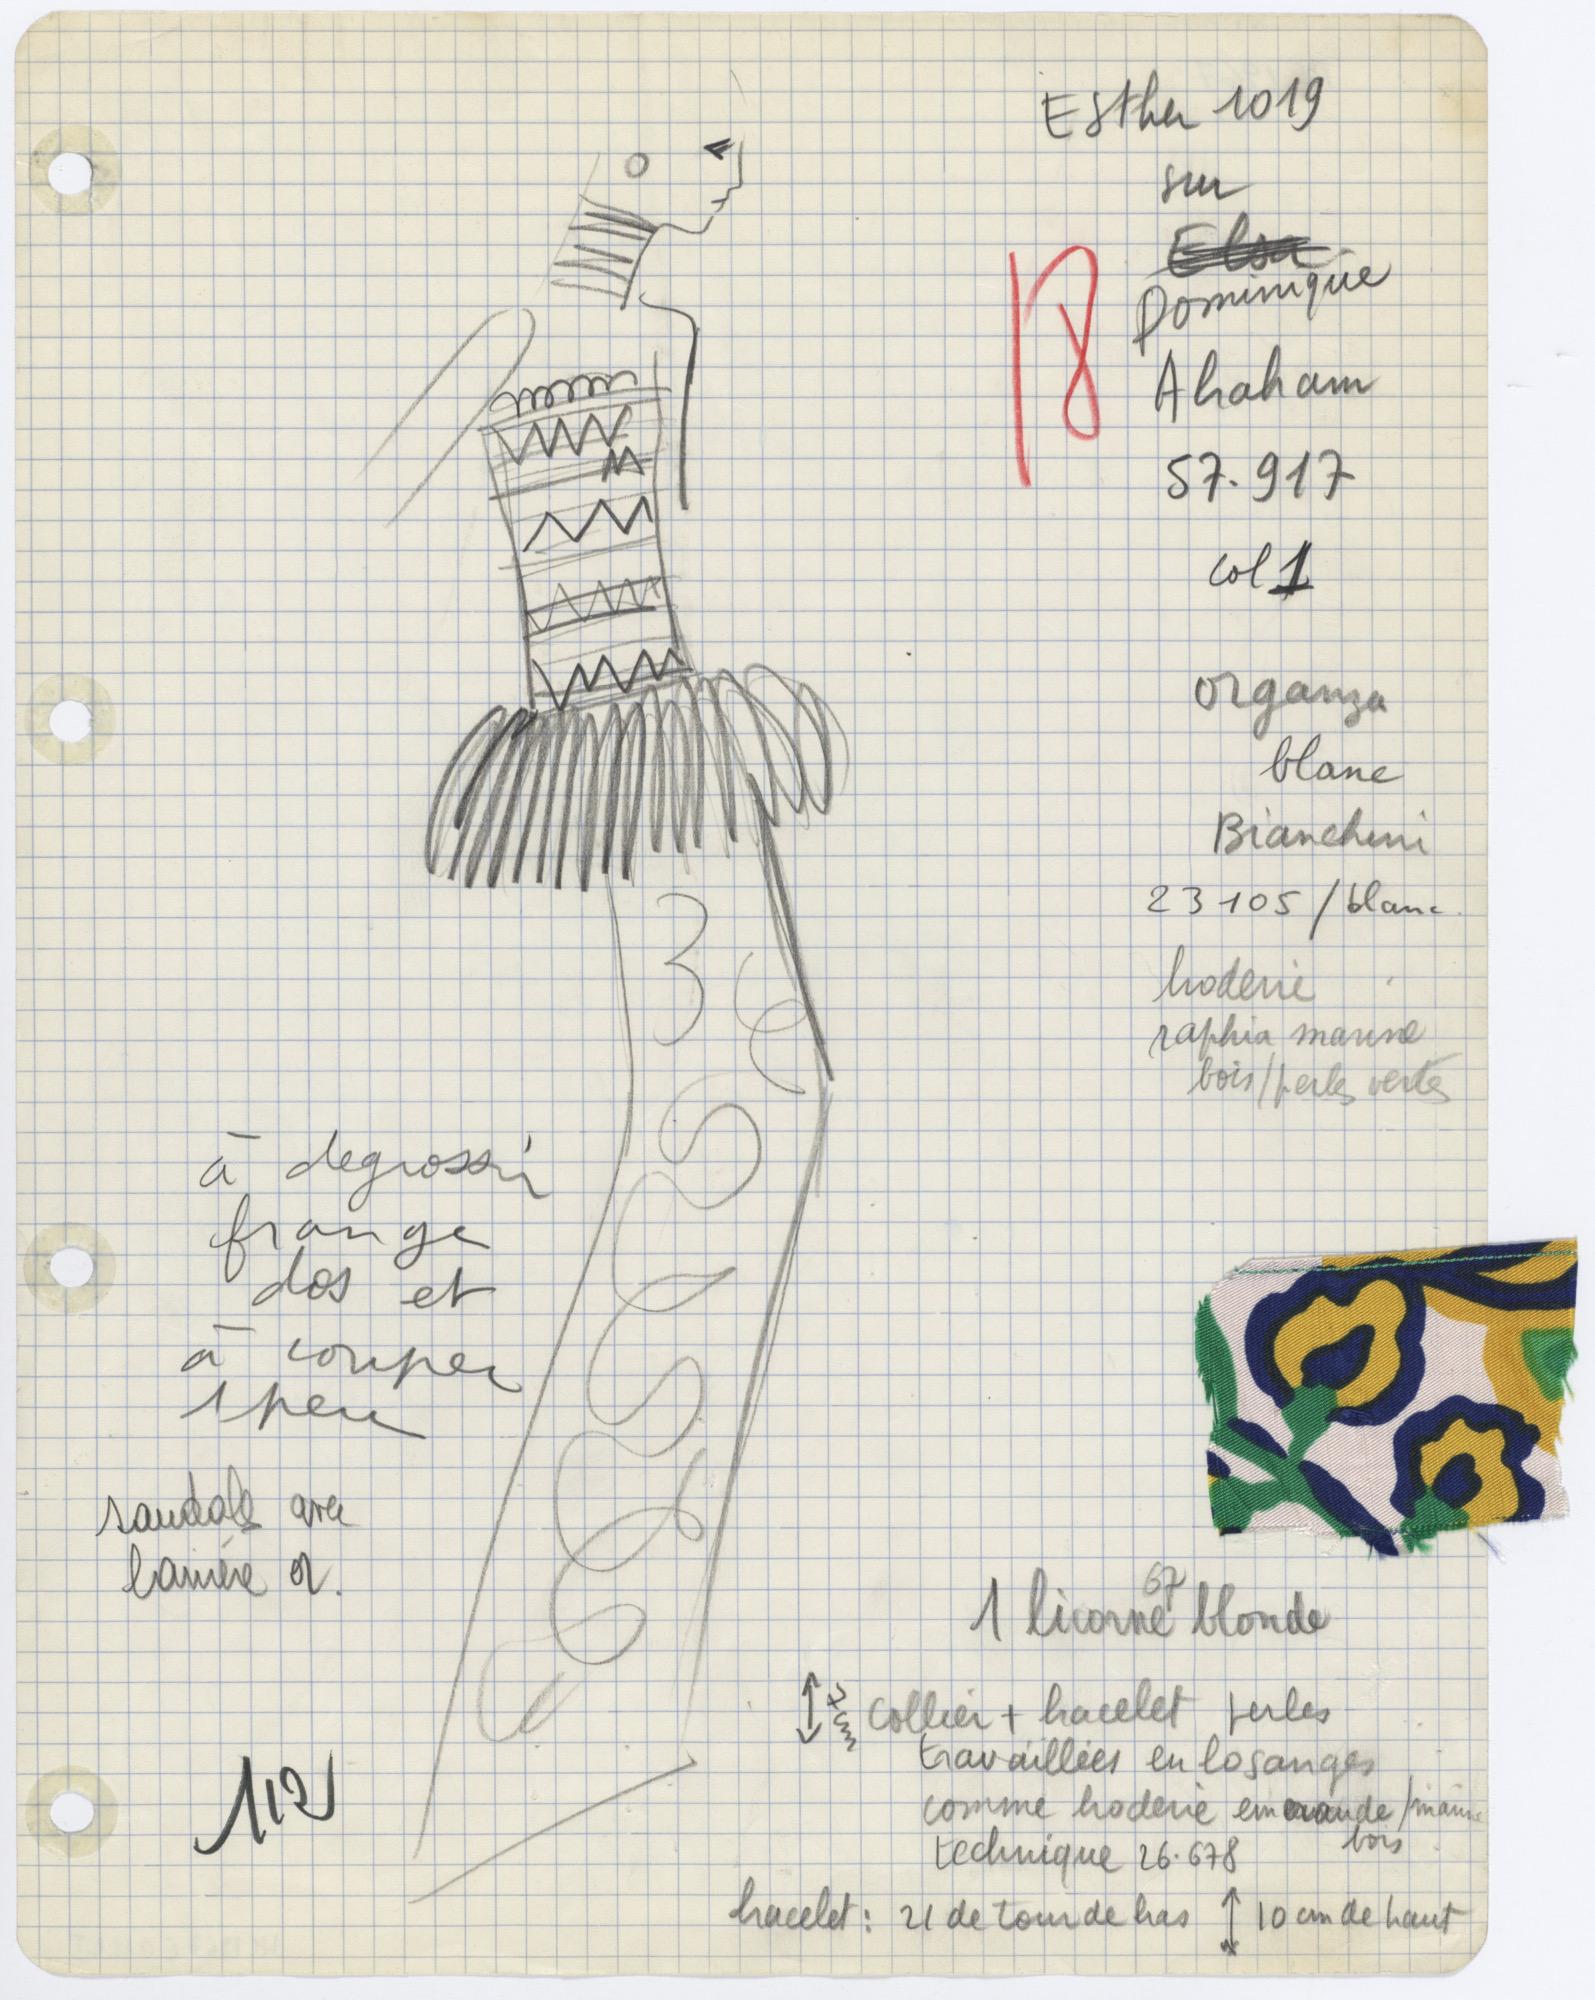 Esther 1019
sur
Elsa
Dominique
18
Abraham
57.917
col 1
organza
blanc
Bianchini
23105/blanc
broderie
raphia marine
bois/perles vertes
à degrossir
frange
dos et
à couper
1 peu
sandale avec
lanière or.
112
67
1 licorne blonde
7 cm
collier + bracelet perles
travaillées en losanges
comme broderie emeraude/marine
bois
technique 26.678
bracelet: 21 de tour de bras 10 cm de haut